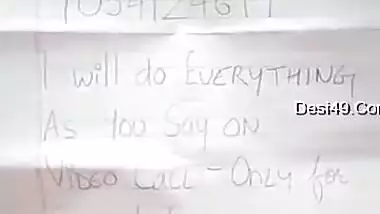 I will do EVERYTHING
Desi49.Co
AS YOU SAY ON
VIDEO CALL - ONLY for